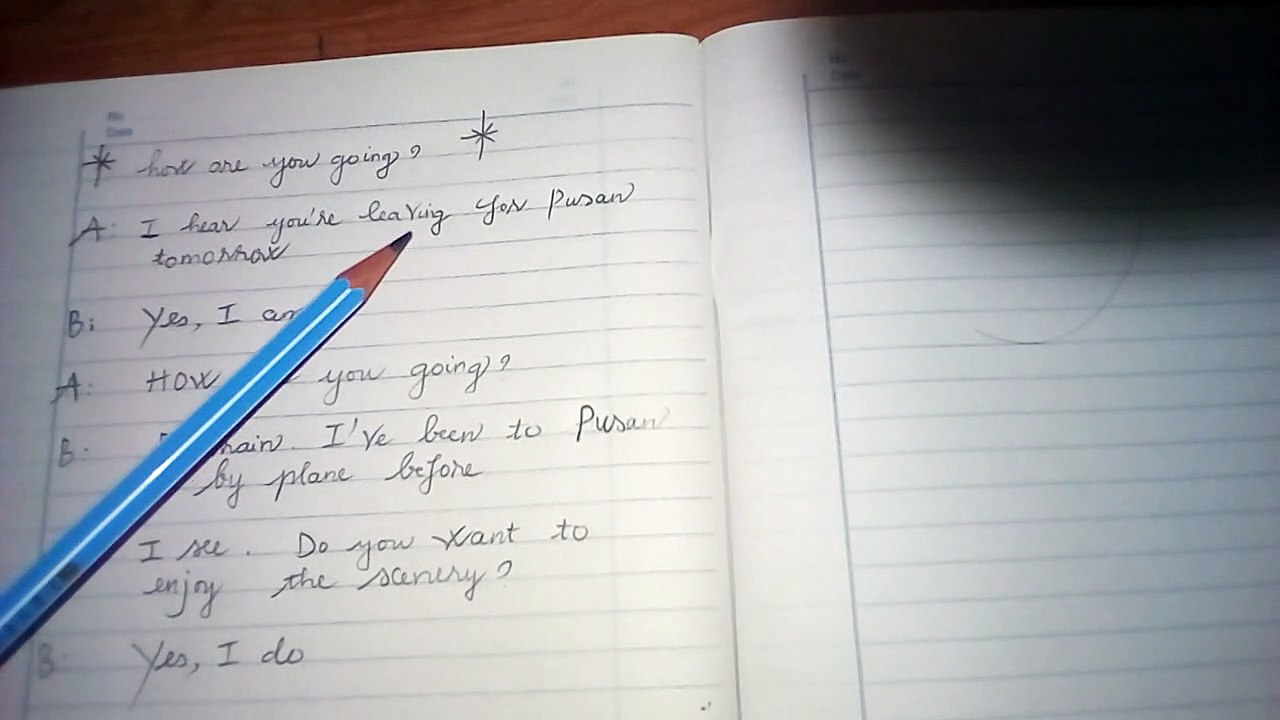 No.
Date
No.
Date
* how are you going? *
A: I hear you're leaving for Pusan
tomorrow
B: Yes, I am
A: How you going?
B. I've been to Pusan
by plane before
I see. Do you want to
enjoy the scenery?
B: Yes, I do